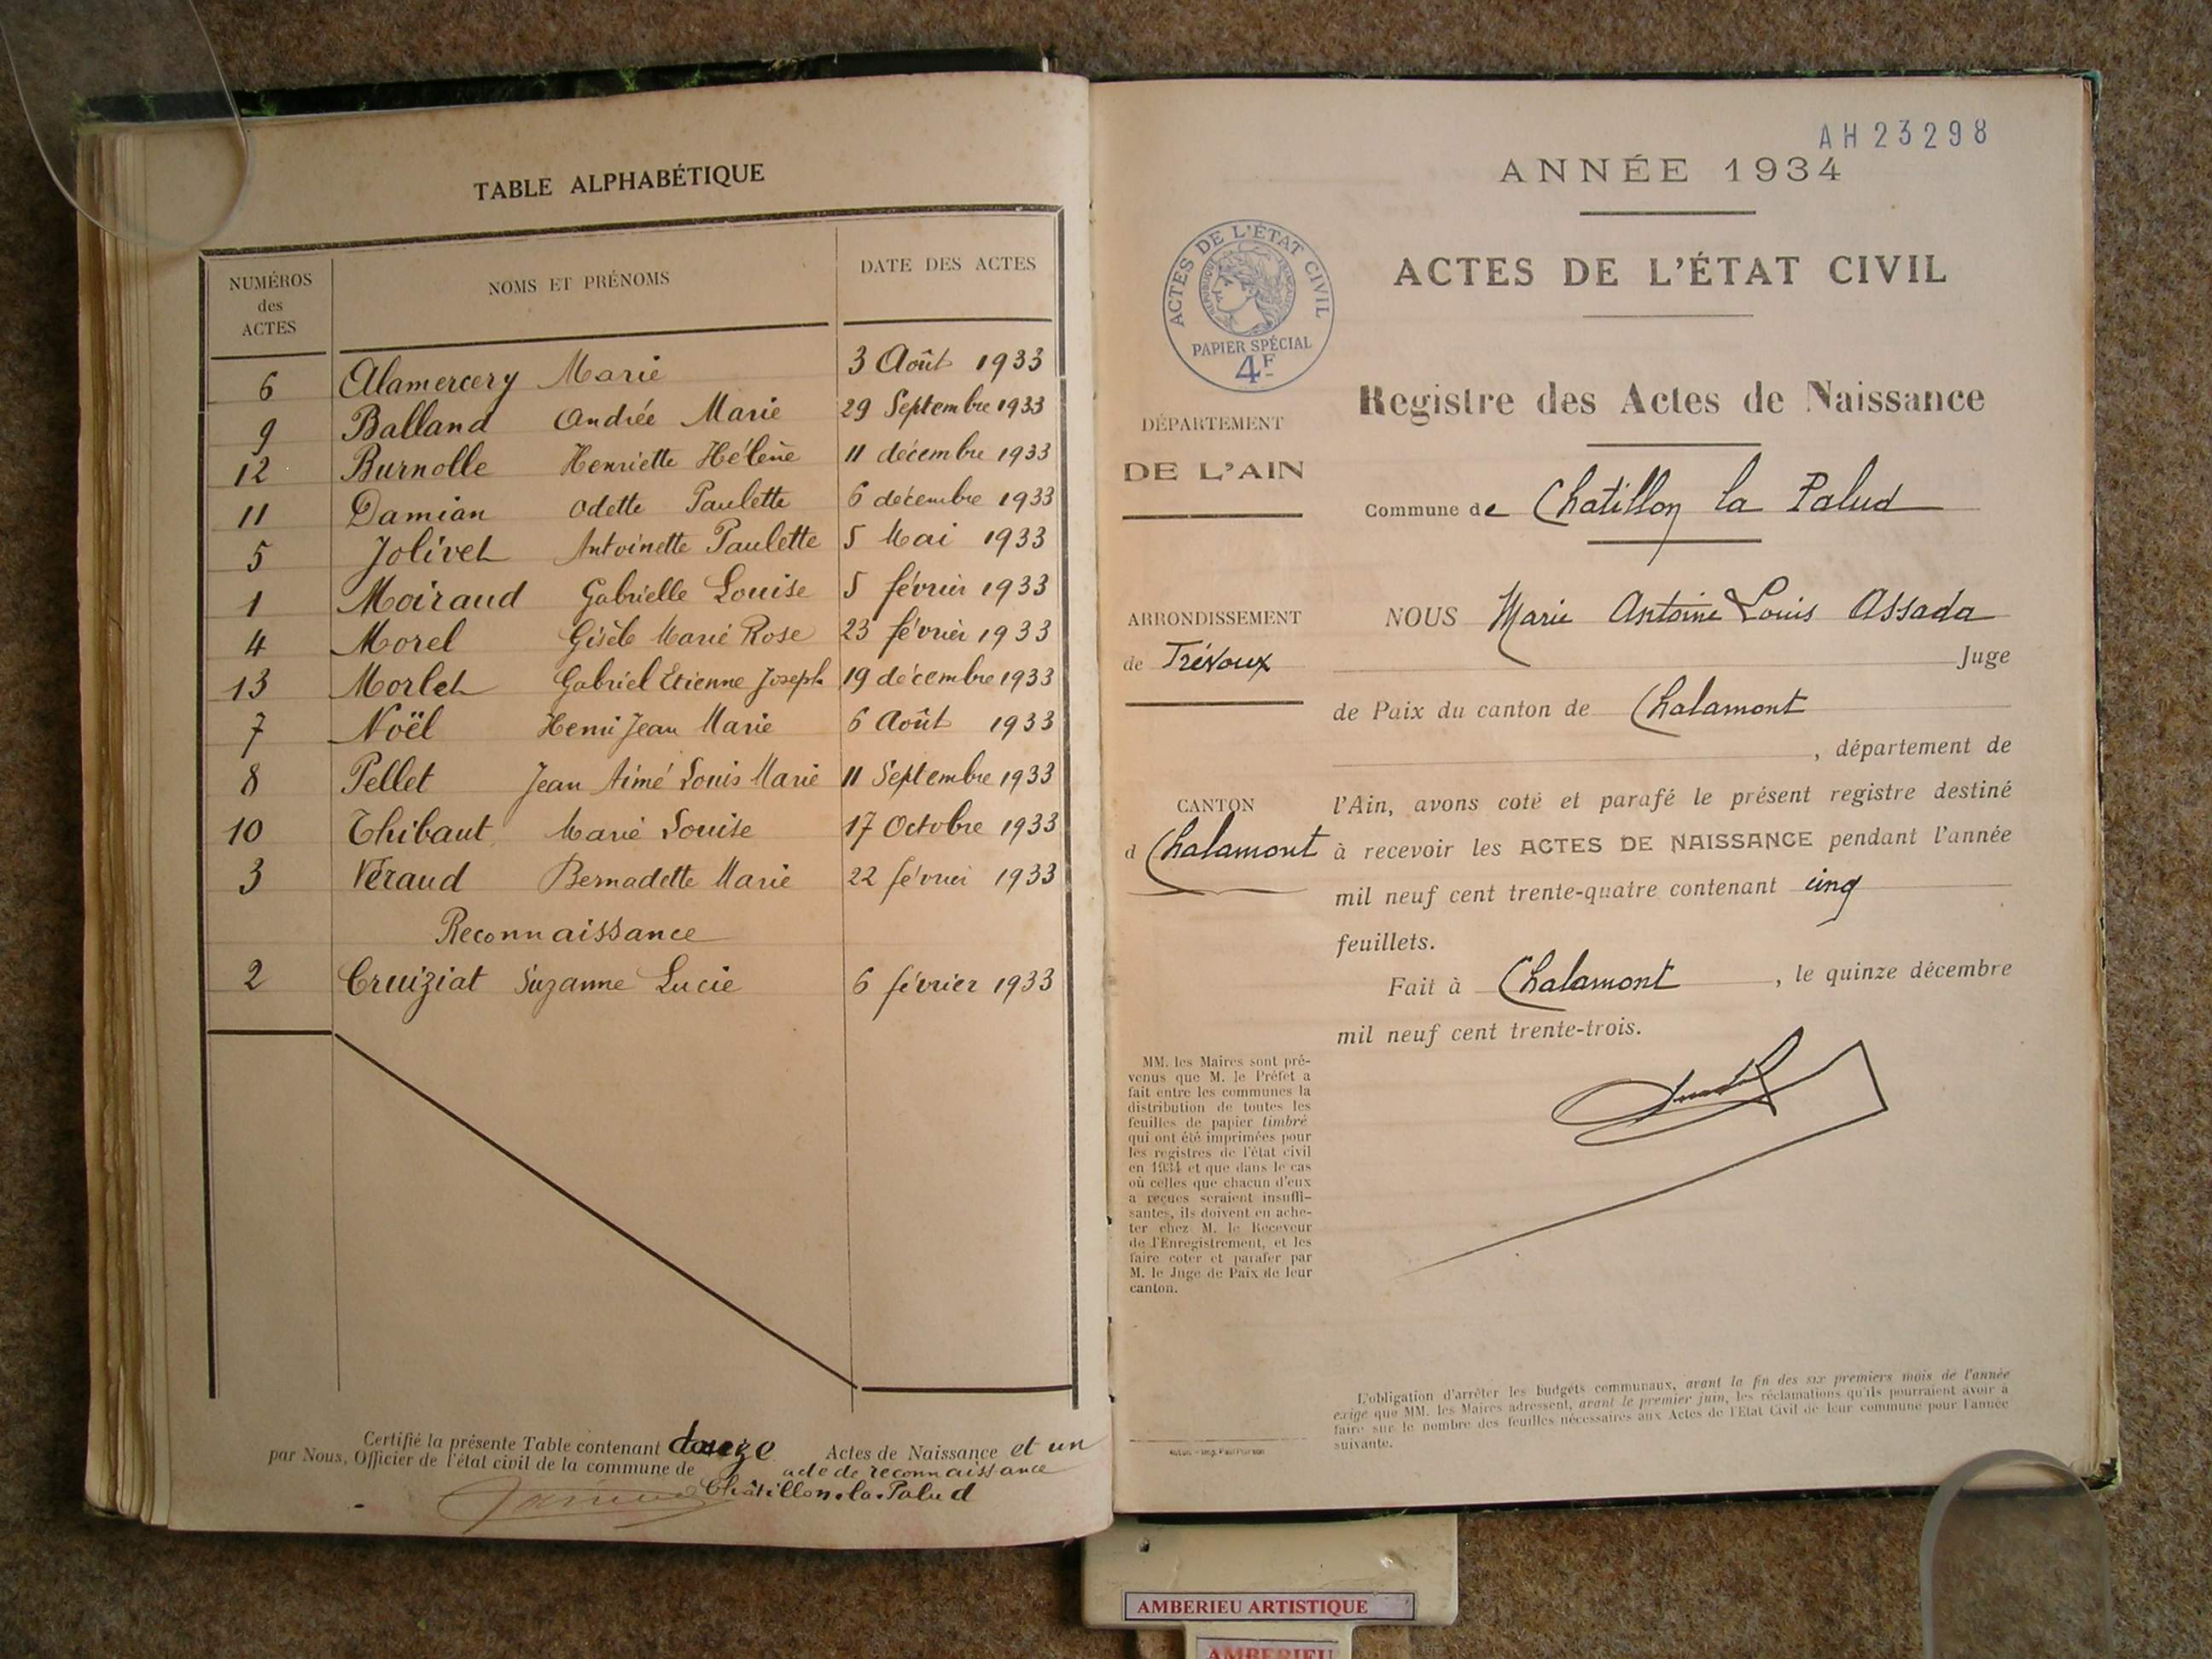 TABLE ALPHABÉTIQUE
NUMÉROS des ACTES NOMS ET PRÉNOMS DATE DES ACTES
6 Alamercery Marie 3 Août 1933
9 Balland Andrée Marie 29 Septembre 1933
12 Burnolle Henriette Hélène 11 décembre 1933
11 Damian Odette Paulette 6 décembre 1933
5 Jolivet Antoinette Paulette 5 Mai 1933
1 Moiraud Gabrielle Louise 5 février 1933
4 Morel Gisèle Marie Rose 23 février 1933
13 Morlet Gabriel Etienne Joseph 19 décembre 1933
7 Noël Henri Jean Marie 6 Août 1933
8 Pellet Jean Aimé Louis Marie 11 Septembre 1933
10 Thibaut Marie Louise 17 Octobre 1933
3 Véraud Bernadette Marie 22 février 1933
Reconnaissance
2 Cruiziat Suzanne Lucie 6 février 1933
Certifié la présente Table contenant douze Actes de Naissance et un
par Nous, Officier de l'état civil de la commune de acte de reconnaissance
Châtillon-la-Palud
AH23298
ANNÉE 1934
ACTES DE L'ÉTAT CIVIL
ACTES DE L'ÉTAT CIVIL
RÉPUBLIQUE FRANÇAISE
PAPIER SPÉCIAL
4F
Registre des Actes de Naissance
DÉPARTEMENT
DE L'AIN
Commune de Chatillon la Palud
ARRONDISSEMENT
de Trévoux
CANTON
d Chalamont
NOUS Marie Antoine Louis Assada
Juge
de Paix du canton de Chalamont
, département de
l'Ain, avons coté et parafé le présent registre destiné
à recevoir les ACTES DE NAISSANCE pendant l'année
mil neuf cent trente-quatre contenant cinq
feuillets.
Fait à Chalamont, le quinze décembre
mil neuf cent trente-trois.
MM. les Maires sont pré-
venus que M. le Préfet a
fait entre les communes la
distribution de toutes les
feuilles de papier timbré
qui ont été imprimées pour
les registres de l'état civil
en 1934 et que dans le cas
où celles que chacun d'eux
a reçues seraient insuffi-
santes, ils doivent en ache-
ter chez M. le Receveur
de l'Enregistrement, et les
faire coter et parafer par
M. le Juge de Paix de leur
canton.
L'obligation d'arrêter les budgets communaux, avant la fin des six premiers mois de l'année
exige que MM. les Maires adressent, avant le premier juin, les réclamations qu'ils pourraient avoir à
faire sur le nombre des feuilles nécessaires aux Actes de l'Etat Civil de leur commune pour l'année
suivante.
AMBERIEU ARTISTIQUE
AMBERIEU